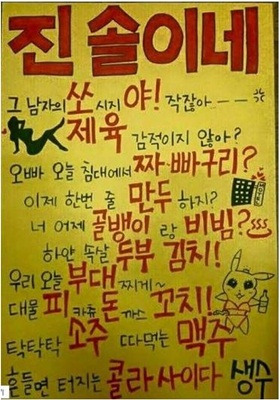 진솔이네
그 남자의 쏘시지야! 작잖아---
제육 감적이지 않아?
오빠 오늘 침대에서 짜·빠구리?
이제 한번 줄 만두 하지?
너 어제 골뱅이랑 비빔?
하얀 속살 두부 김치!
우리 오늘 부대찌게~
대물 피카츄 돈까스 꼬치!
탁탁탁 소주 따먹는 맥주
흔들면 터지는 콜라 사이다 생수